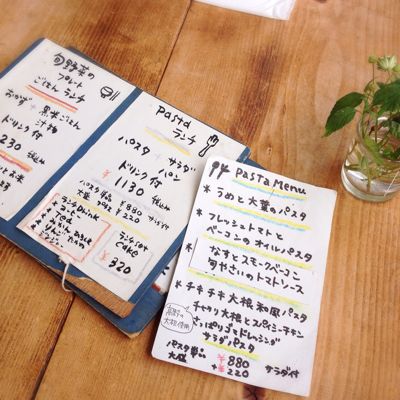 旬野菜の
プレート
ごはんランチ
おかず + 黒米ごはん
汁物
ドリンク付
230
Pasta
ランチ
パスタ + サラダ
パン
ドリンク付
1130
パスタ単品 ¥880
大盛 ¥220
ランチDrink
Tea
ランチset
cake
¥320
Pasta Menu
* うめと大葉のパスタ
* フレッシュトマトと
ベーコンのオイルパスタ
* なすとスモークベーコン
旬やさいのトマトソース
* チキチキ大根和風パスタ
大根使用
千切り大根とスパイシーチキン
さっぱりごまドレッシング
サラダパスタ
パスタ単品 ¥880
大盛 ¥220
サラダ付